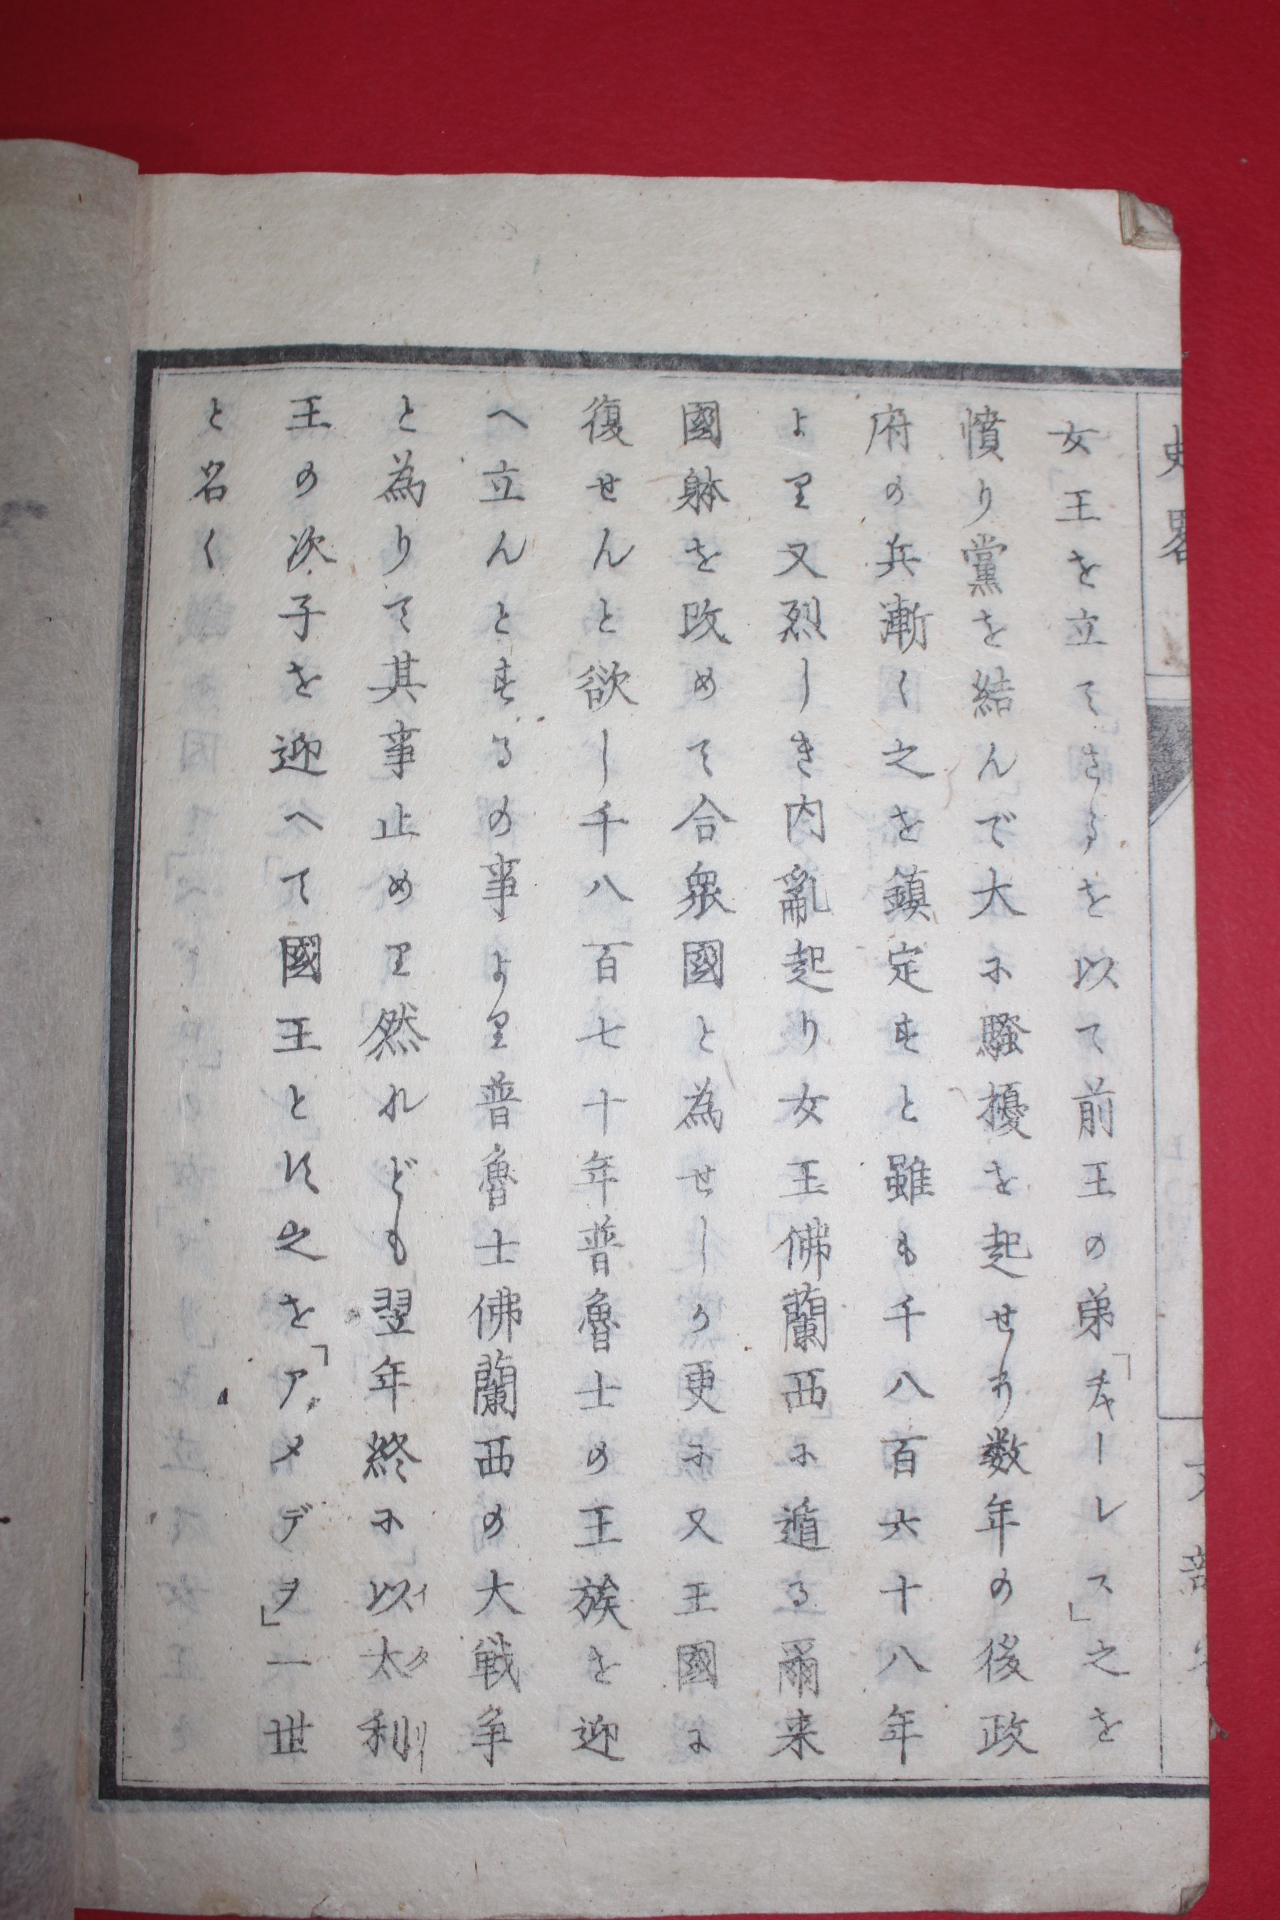 史略
女王を立てさるを以て前王の弟「チャーレス」之を
憤り黨を結んで大に騒擾を起せり数年の後政
府の兵漸く之を鎮定すと雖も千八百六十八年
より又烈しき内亂起り女王佛蘭西に遁る爾来
國躰を改めて合衆國と為せしか更に又王國に
復せんと欲し千八百七十年普魯士の王族を迎
へ立んとするの事より普魯士佛蘭西の大戦争
と為りて其事止めり然れども翌年終に以太利
イタリー
王の次子を迎へて國王とす之を「アメデヲ」一世
と名く